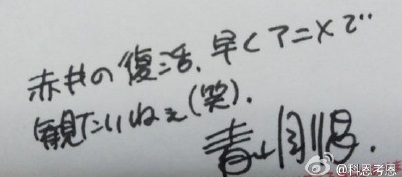 赤井の復活、早くアニメで
観たいねぇ(笑).
青山剛昌.
@科恩考恩